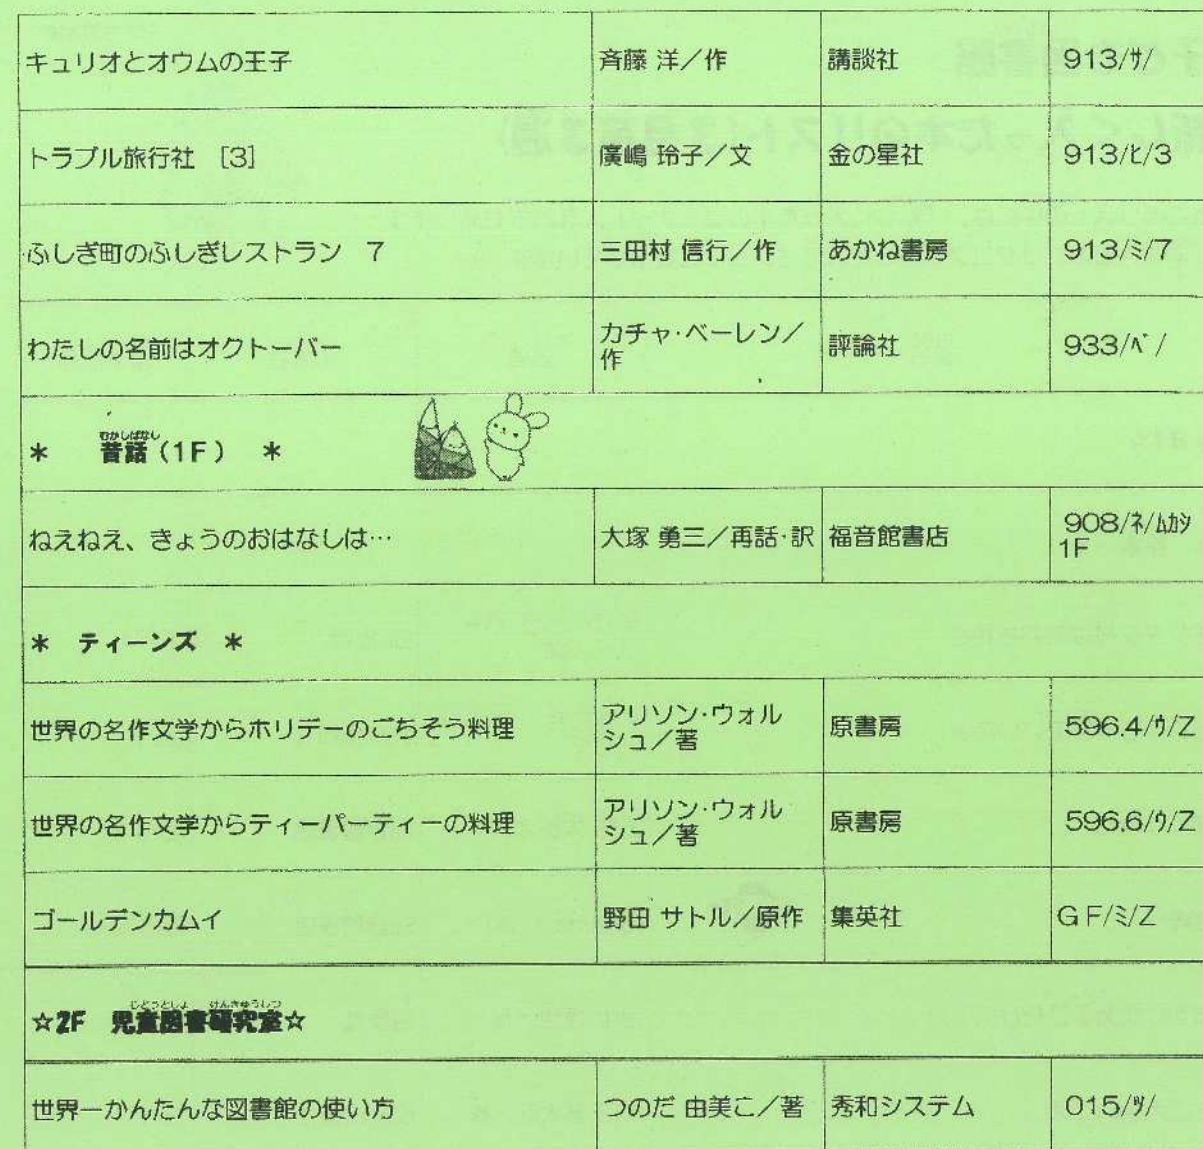 キュリオとオウムの王子 斉藤 洋／作 講談社 913/ｻ/
トラブル旅行社 [3] 廣嶋 玲子／文 金の星社 913/ﾋ/3
ふしぎ町のふしぎレストラン 7 三田村 信行／作 あかね書房 913/ﾐ/7
わたしの名前はオクトーバー カチャ・ベーレン／ 評論社 933/ﾍﾞ/
作
むかしばなし
＊ 昔話(1F) ＊
ねえねえ、きょうのおはなしは… 大塚 勇三／再話・訳 福音館書店 908/ﾈ/ﾑｶｼ
1F
＊ ティーンズ ＊
世界の名作文学からホリデーのごちそう料理 アリソン・ウォル 原書房 596.4/ｳ/Z
シュ／著
世界の名作文学からティーパーティーの料理 アリソン・ウォル 原書房 596.6/ｳ/Z
シュ／著
ゴールデンカムイ 野田 サトル／原作 集英社 GF/ﾐ/Z
じどうとしょ けんきゅうしつ
☆2F 児童図書研究室☆
世界一かんたんな図書館の使い方 つのだ 由美こ／著 秀和システム 015/ﾂ/